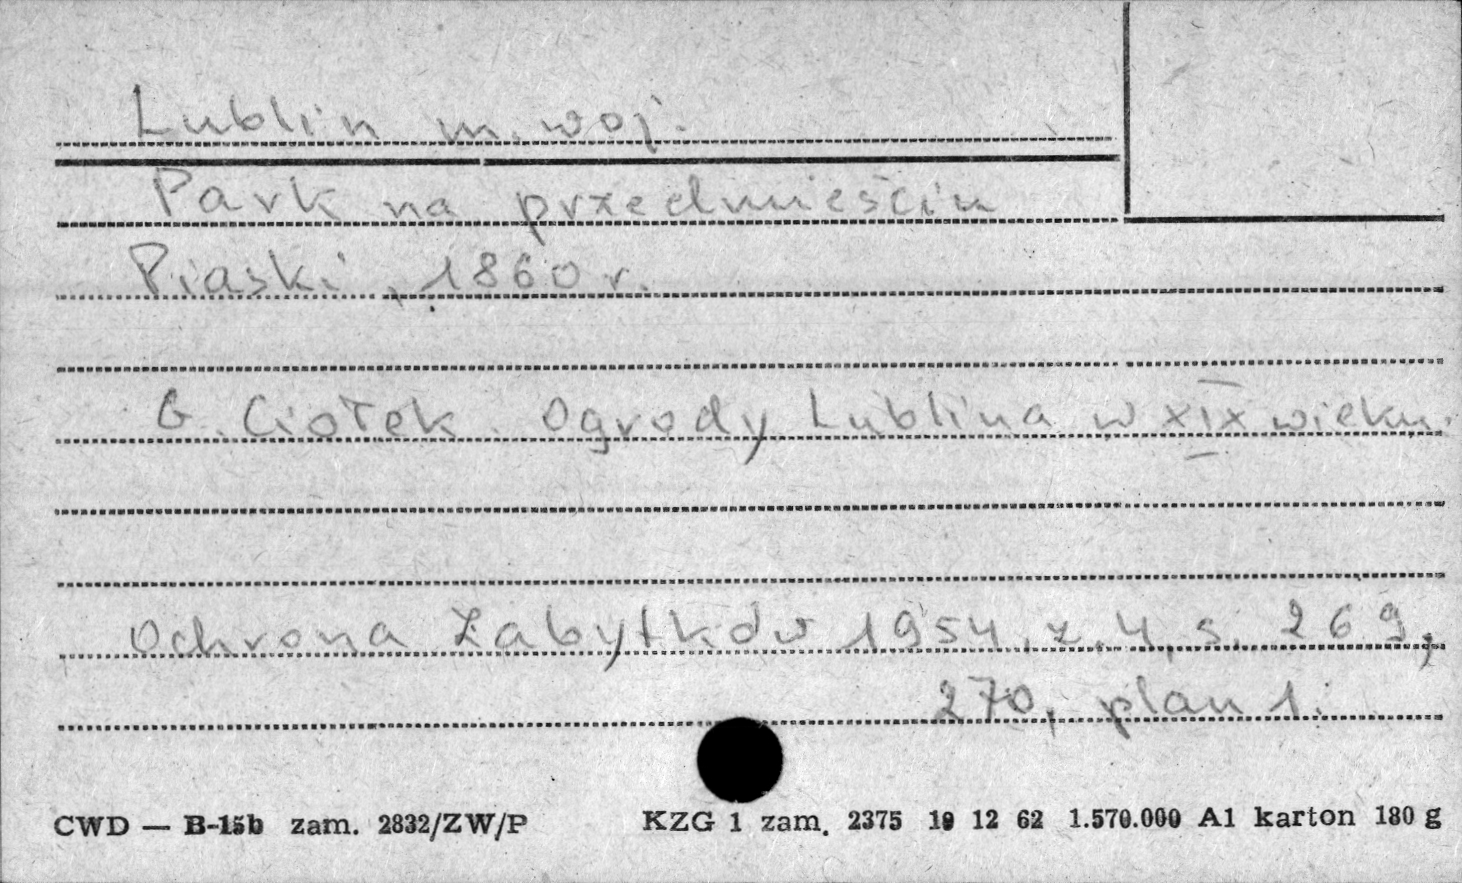 Lublin m. woj.
Park na przedmieściu
Piaski, 1860 r.
G. Ciołek. Ogrody Lublina w XIX wieku.
Ochrona Zabytków 1954, z. 4, s. 269,
270, plan 1.
CWD — B-15b zam. 2832/ZW/P KZG 1 zam. 2375 10 12 62 1.570.000 A1 karton 180 g